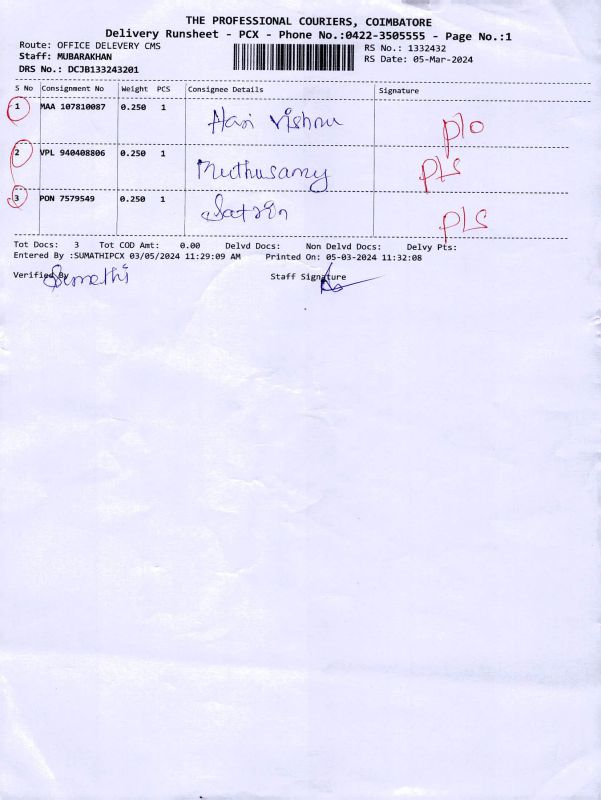 THE PROFESSIONAL COURIERS, COIMBATORE
Delivery Runsheet - PCX - Phone No.:0422-3505555 - Page No.:1
Route: OFFICE DELEVERY CMS
RS No.: 1332432
Staff: MUBARAKHAN
RS Date: 05-Mar-2024
DRS No.: DCJB133243201
S No Consignment No Weight PCS Consignee Details Signature
1 MAA 107810087 0.250 1 Hari Vishnu
2 VPL 940408806 0.250 1 Muthusamy PLS
3 PON 7579549 0.250 1 PLS
Tot Docs: 3 Tot COD Amt: 0.00 Delvd Docs: Non Delvd Docs: Delvy Pts:
Entered By :SUMATHIPCX 03/05/2024 11:29:09 AM Printed On: 05-03-2024 11:32:08
Verified By Sumathi Staff Signature